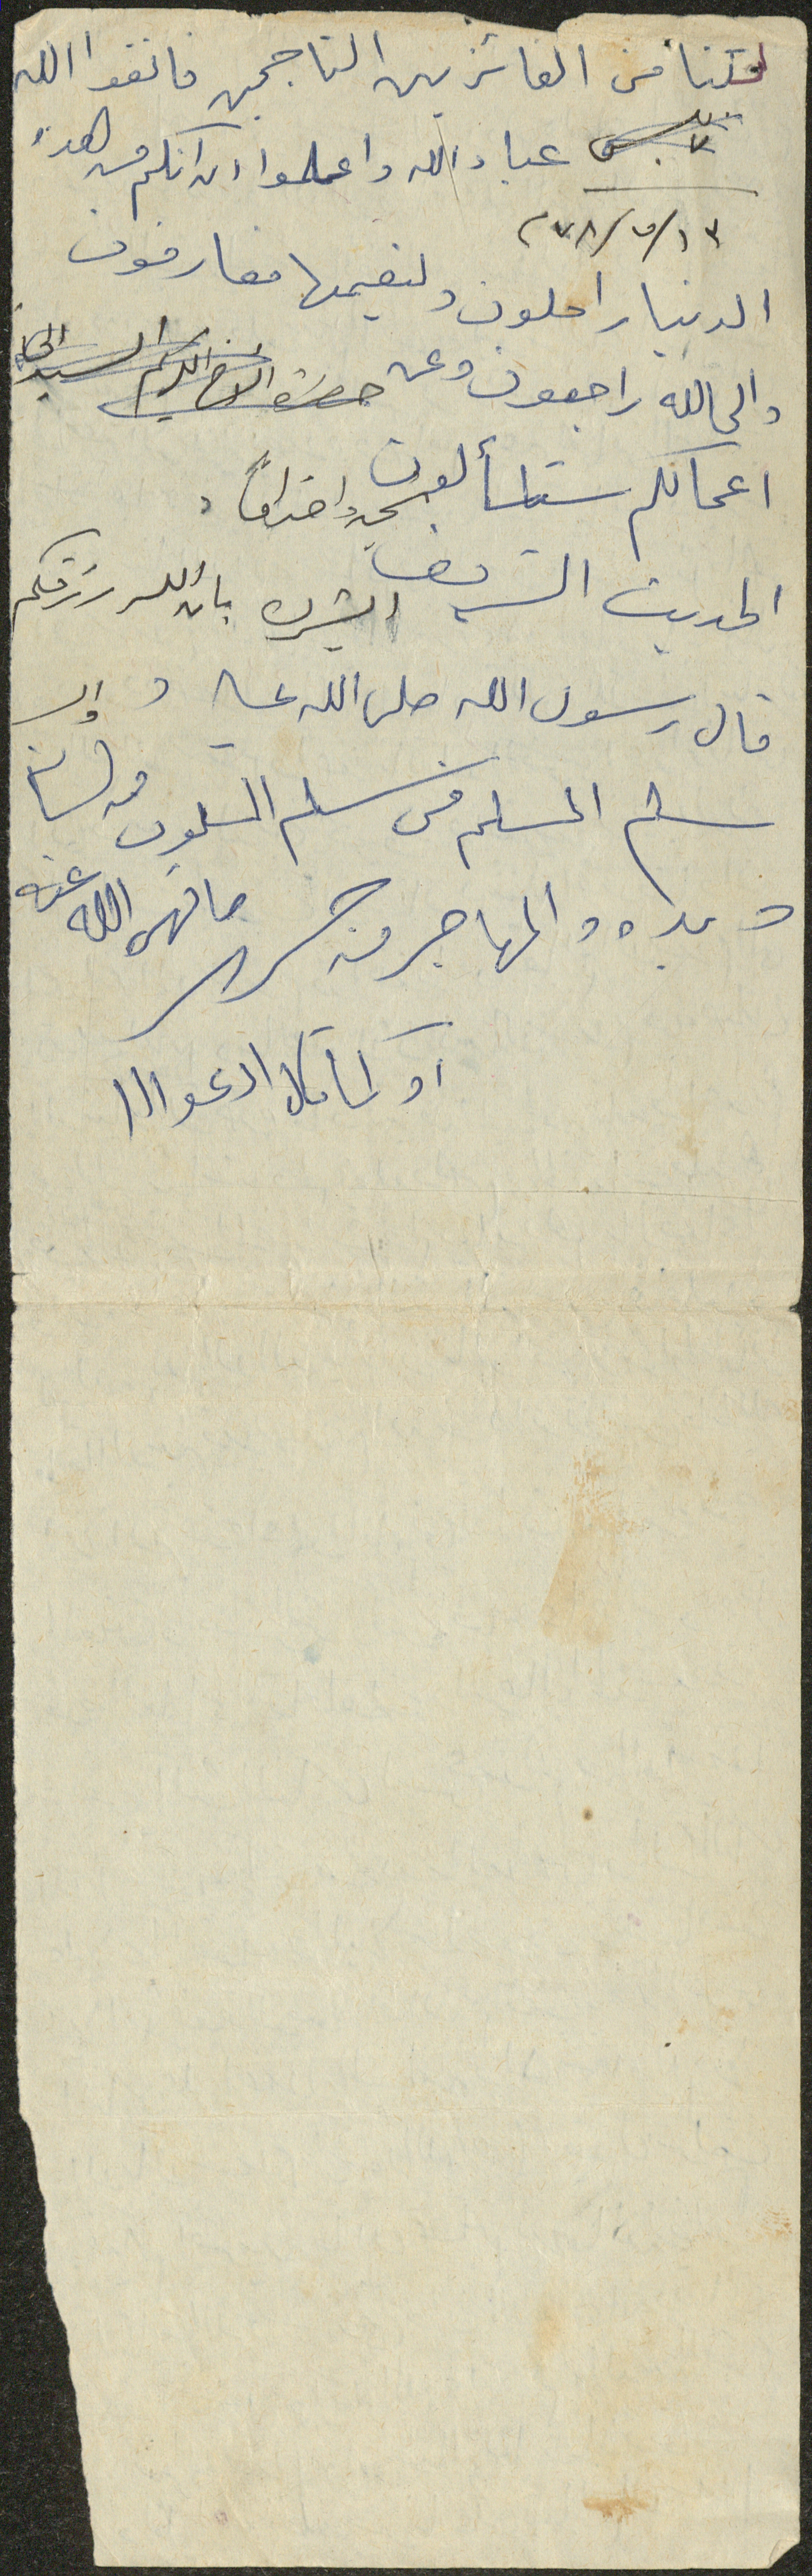 لكنا من الفائزين الناجحين فاتقوا الله
عباد الله واعلموا انكم من هذه
الدنيا راحلون ولنعيمها مفارقون
والى الله راجعون وعن حضرة الاخ الكريم السيد
اعمالكم ستسألون تحية واحتراماً و
الحديث الشريف ابشرك بان الله رزقكم
قال رسول الله صلى الله عليه و
سلم المسلم من سلم المسلمون من لسانه
ويده والمهاجر من هجر ما نهى الله عنه
او كما قال ادعوا الله